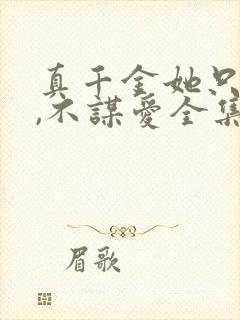 真千金她只
,不謀愛全集
眉歌